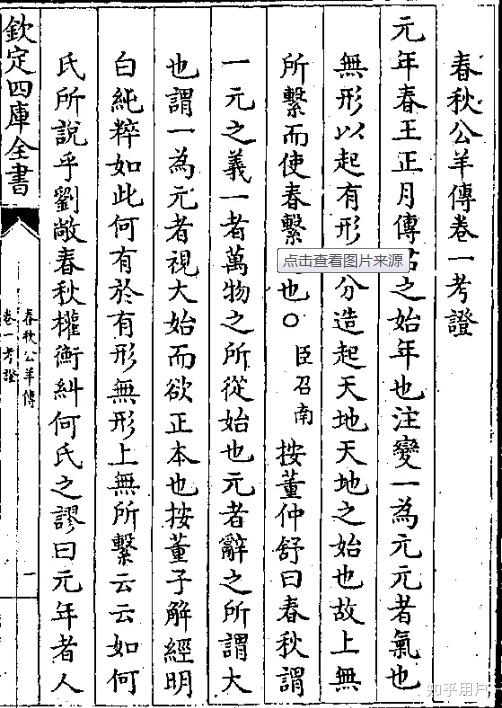 春秋公羊傳卷一考證
元年春王正月傳君之始年也注變一為元元者氣也
無形以起有形分造起天地天地之始也故上無
所繫而使春繫也○臣召南按董仲舒曰春秋謂
一元之義一者萬物之所從始也元者辭之所謂大
也謂一為元者視大始而欲正本也按董子解經明
白純粹如此何有於有形無形上無所繫云云如何
氏所說乎劉敞春秋權衡糾何氏之謬曰元年者人
欽定四庫全書
春秋公羊傳
卷一考證
一
点击查看图片来源
知乎用户